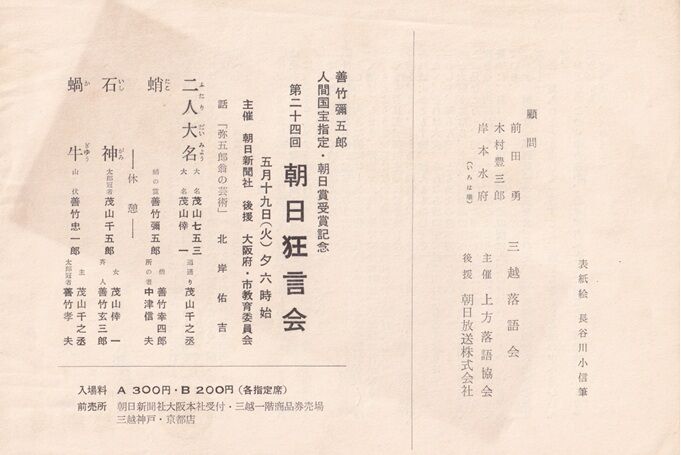 表紙絵　長谷川小信筆
三越落語会
主催　上方落語協会
後援　朝日放送株式会社
顧問
前田　勇
木村豊三郎
岸本水府
（いろは順）
善竹彌五郎
人間国宝指定・朝日賞受賞記念
第二十四回　朝日狂言会
五月十九日（火）夕六時始
主催　朝日新聞社　後援　大阪府・市教育委員会
話　「弥五郎翁の芸術」　北岸佑吉
二人大名　ふたりだいみょう
大名　茂山七五三
大名　茂山倖一
道通り　茂山千之丞
蛸　たこ
蛸の霊　善竹彌五郎
僧　善竹幸四郎
所の者　中津信夫
――休憩――
石神　いしがみ
太郎冠者　茂山千五郎
女　茂山倖一
蝸牛　かぎゅう
山伏　善竹忠一郎
斉人　善竹玄三郎
主　茂山千之丞
太郎冠者　善竹孝夫
入場料　A 300円・B 200円（各指定席）
前売所　朝日新聞社大阪本社受付・三越一階商品券売場
三越神戸・京都店